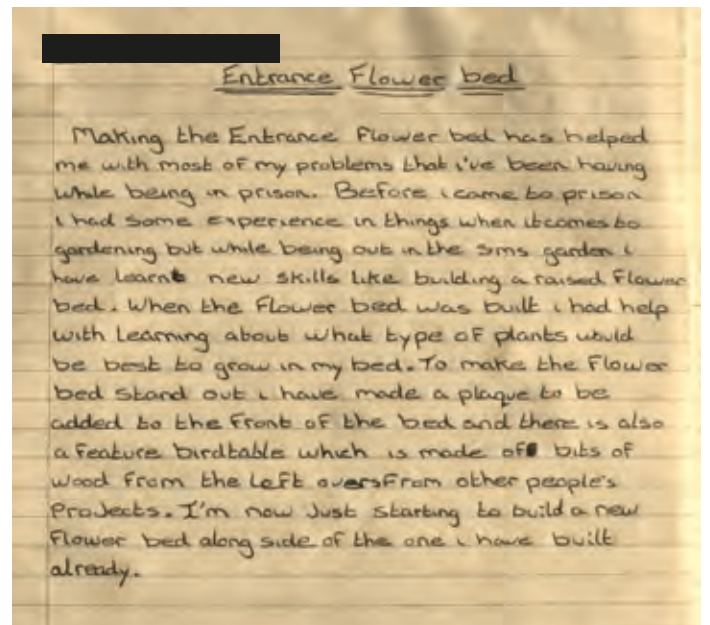 Entrance Flower bed
Making the Entrance Flower bed has helped
me with most of my problems that i've been having
while being in prison. Before i came to prison
i had some experience in things when it comes to
gardening but while being out in the sms garden i
have learnt new skills like building a raised Flower
bed. When the Flower bed was built i had help
with Learning about what type of plants would
be best to grow in my bed. To make the Flower
bed stand out i have made a plaque to be
added to the front of the bed and there is also
a feature birdtable which is made of bits of
wood from the left overs From other people's
Projects. I'm now Just starting to build a new
Flower bed along side of the one i have built
already.